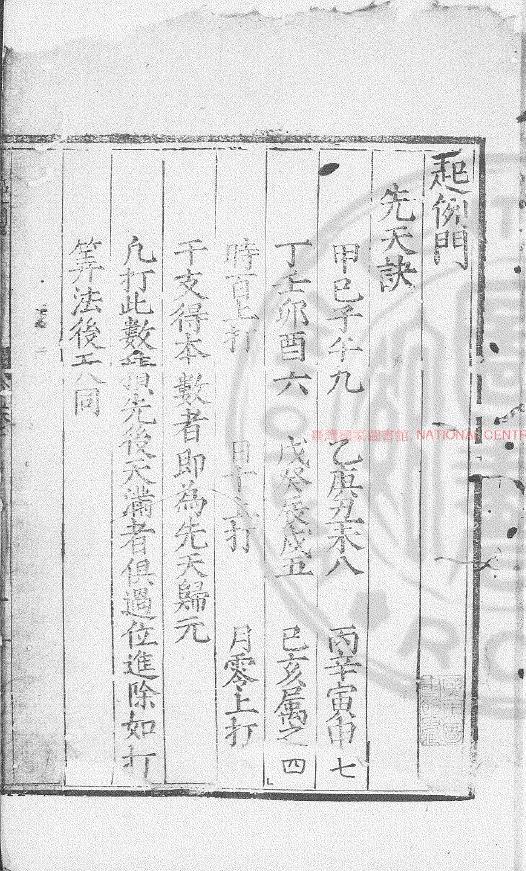 起例門
先天訣
甲己子午九 乙庚丑未八 丙辛寅申七
丁壬卯酉六 戊癸辰戌五 巳亥屬之四
時百上打 日十上打 月零上打
干支得本數者即為先天歸元
凡打此數 先後天滿者俱過位進除如打
筭法後 同
臺灣國家圖書館 NATIONAL CENTR